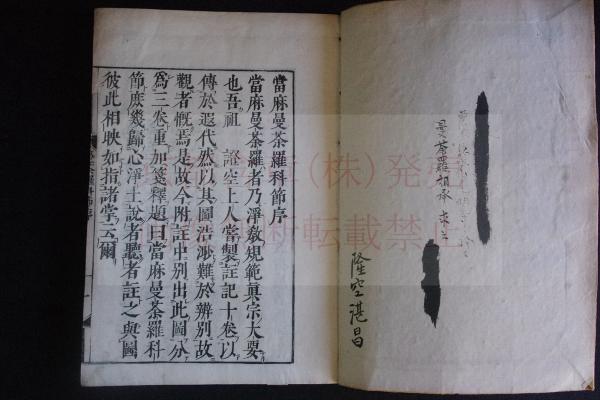 曼荼羅相承
隆空湛昌
當麻曼荼羅科節序
當麻曼荼羅者乃淨教規範真宗大要
也吾祖 證空上人嘗製註記十卷以
傳於遐代然以其圖浩渺難於辨別故
觀者慨焉是故今附註中別出此圖分
為三卷重加箋釋題曰當麻曼荼羅科
節庶幾歸心淨土說者聽者註之與圖
彼此相映如指諸掌云爾
(株)発売
無断転載禁止